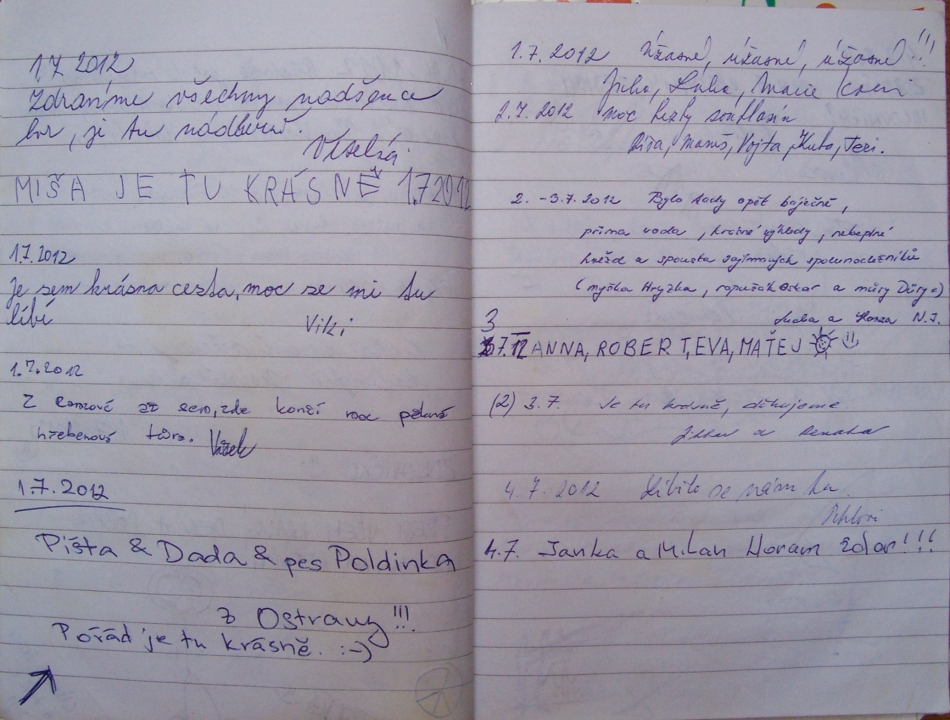 1.7. 2012
Zdravíme všechny nadšence
hor, je tu nádherně.
Veselá
MÍŠA JE TU KRÁSNĚ 1.7.2012
1.7.2012
Je sem krásna cesta, moc se mi tu
líbí
Viki
1.7.2012
Z Ramzové až sem, zde končí moc pěkná
hřebenová túra. Vašek
1.7.2012
Píšťa & Dada & pes Poldinka
z Ostravy !!!
Pořád je tu krásně. :-)
1.7.2012 Úžasné, úžasné, úžasné !!!
2.7.2012 moc hezky souhlasím
Vojta, Kuba, Teri.
2. -3.7.2012 Bylo tady opět báječně,
prima voda, krásné výhledy, nebeské
hvězd a spousta zajímavých spolunocležníků
(myška Hryzka, ropušák Oskar a můry Dáry)
a Honza N.J.
3.7.12 ANNA, ROBERT, EVA, MAŤEJ
(2) 3.7. Je tu krásně, děkujeme
a Renata
4.7.2012 Líbilo se nám tu.
4.7. Janka a Milan Horám Zdar!!!